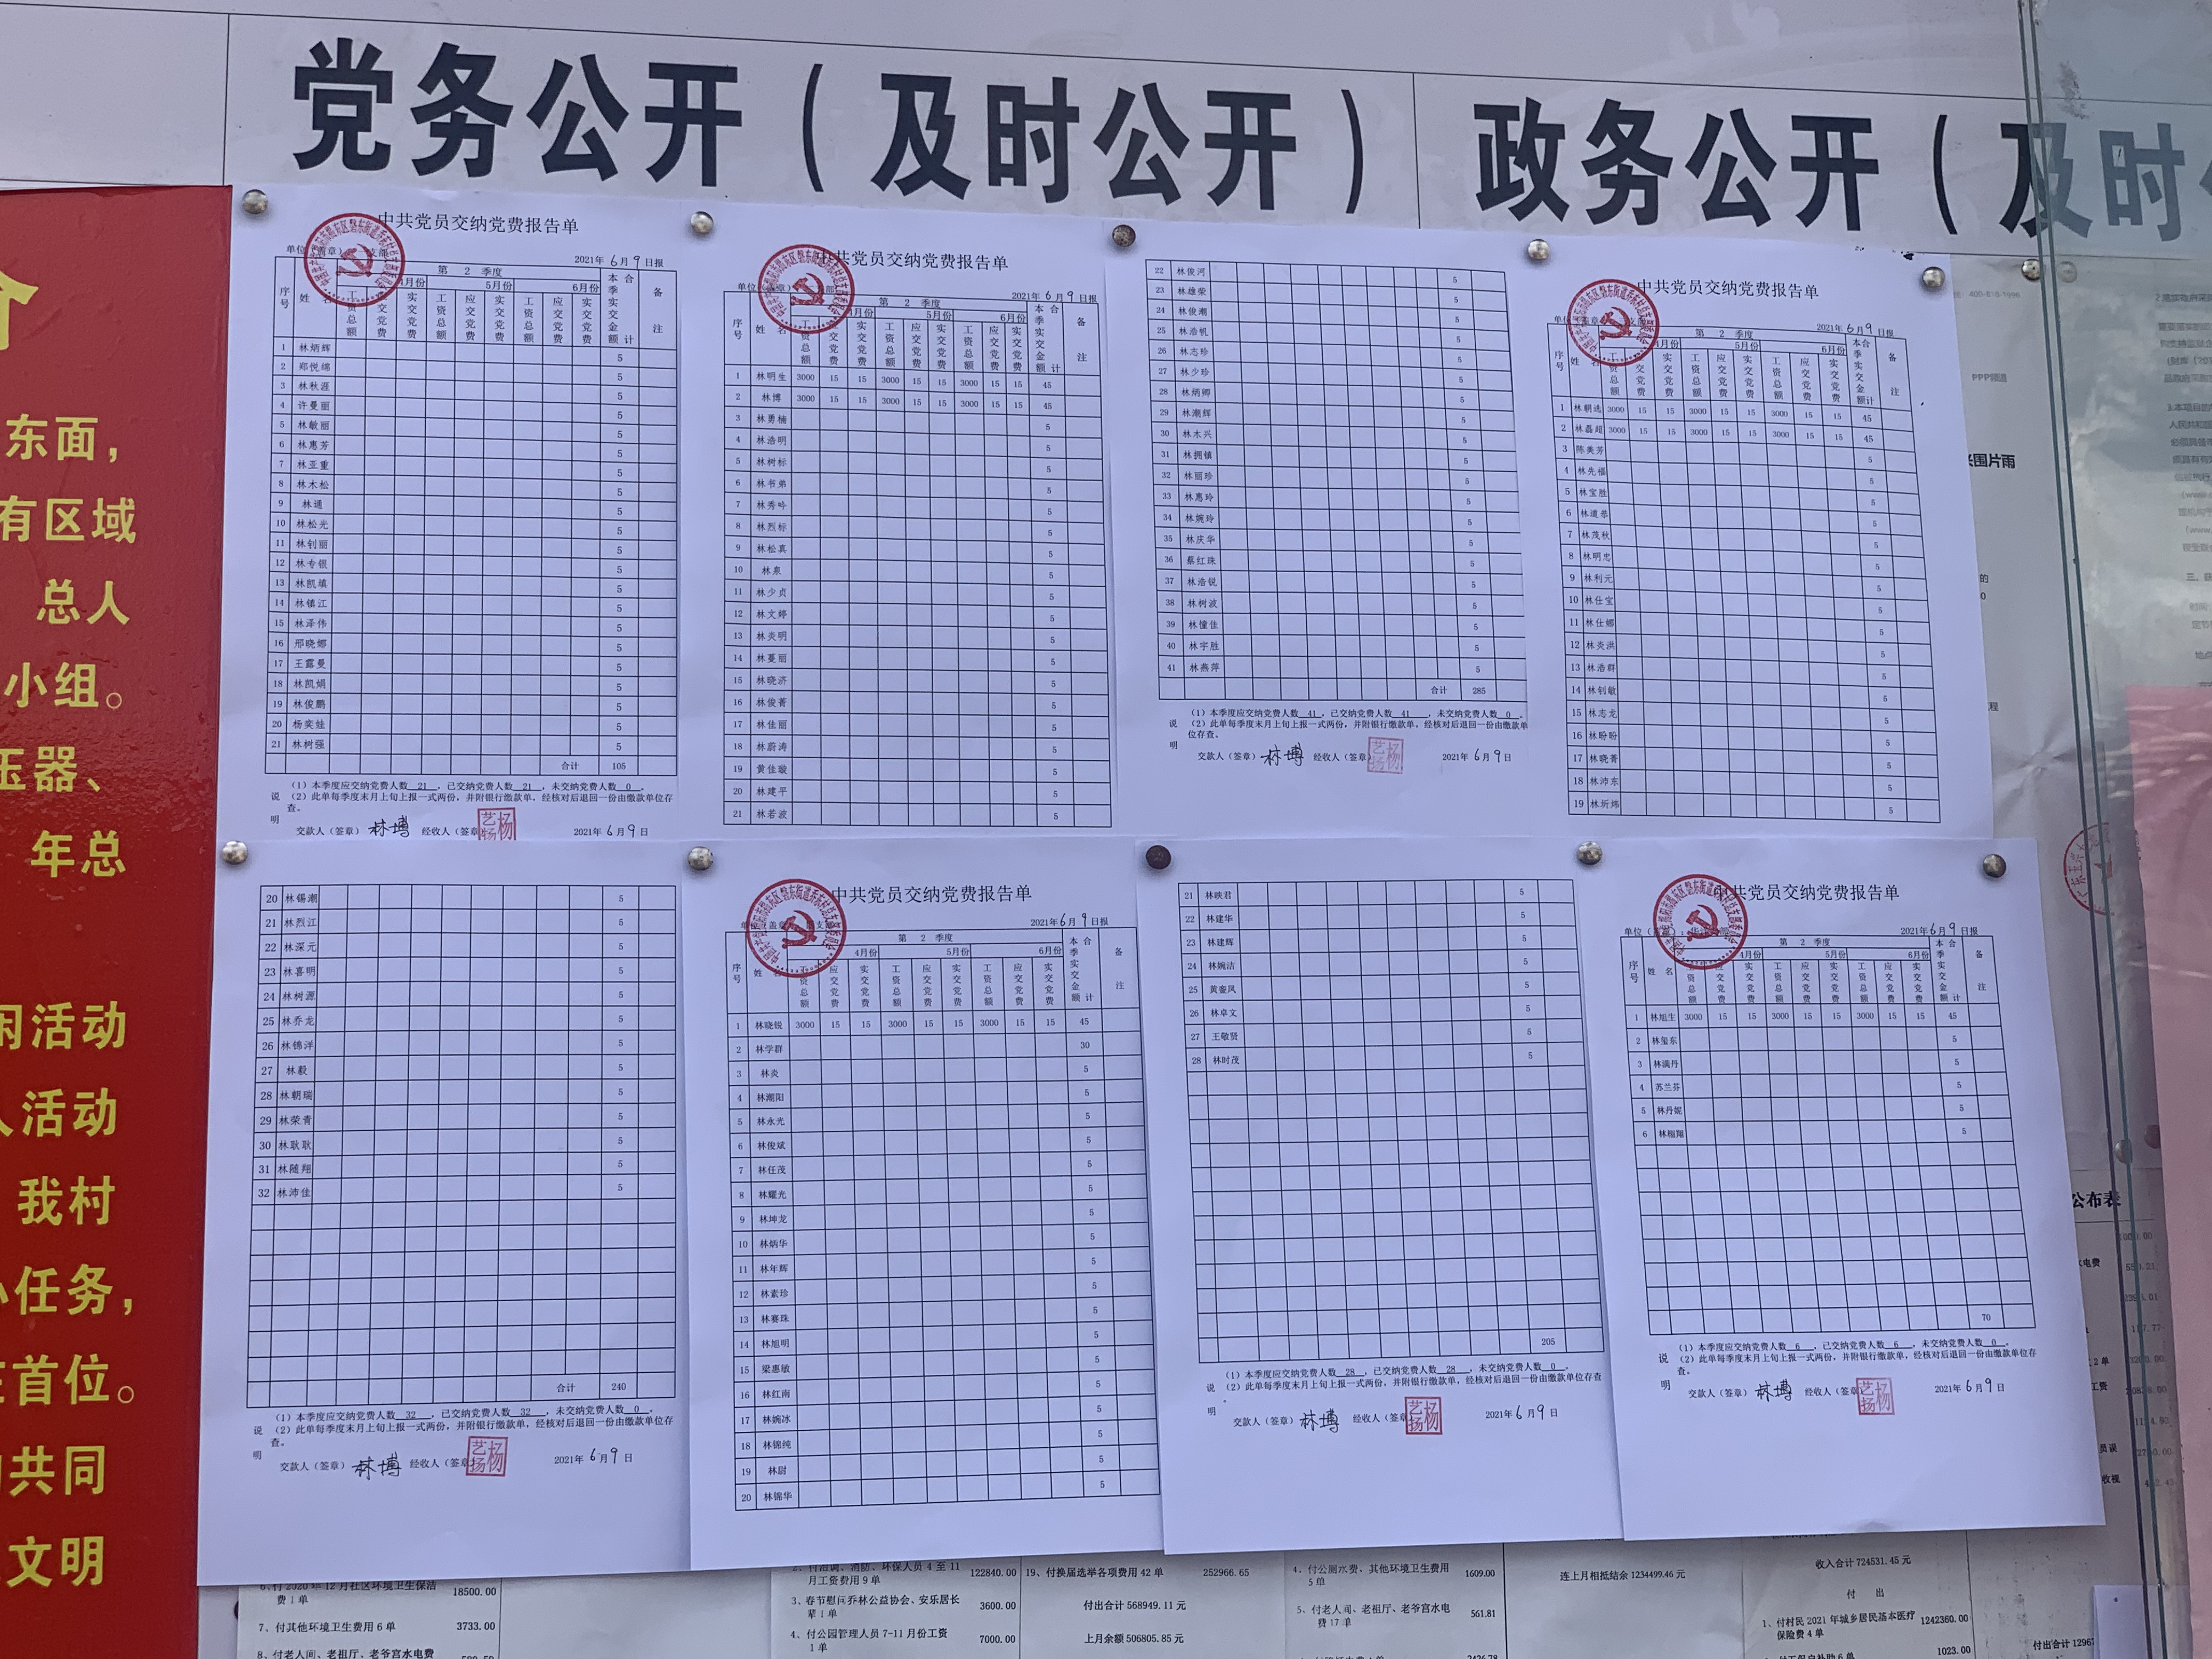 党务公开(及时公开)
政务公开(及时
东面,
有区域
总人
小组。
压器、
年总
闲活动
人活动
我村
任务,
在首位。
共同
文明
中共党员交纳党费报告单
2021年6月9日报
第 2 季度
5月份 6月份
序号 姓名 工资总额 应交党费 实交党费 工资总额 应交党费 实交党费 工资总额 应交党费 实交党费 本季实交金额合计 备注
1 林炳辉 5
2 郑悦绵 5
3 林秋涯 5
4 许曼丽 5
5 林敏丽 5
6 林惠芳 5
7 林亚重 5
8 林木松 5
9 林通 5
10 林松光 5
11 林钊丽 5
12 林专银 5
13 林凯填 5
14 林镇江 5
15 林泽伟 5
16 邢晓娜 5
17 王露曼 5
18 林凯娟 5
19 林俊鹏 5
20 杨奕娃 5
21 林树强 5
合计 105
说明
(1)本季度应交纳党费人数 21 ,已交纳党费人数 21 ,未交纳党费人数 0 。
(2)此单每季度末月上旬上报一式两份,并附银行缴款单,经核对后退回一份由缴款单位存查。
交款人(签章)林博 经收人(签章)杨艺扬 2021年6月9日
中共党员交纳党费报告单
2021年6月9日报
第 2 季度
5月份 6月份
序号 姓名 工资总额 应交党费 实交党费 工资总额 应交党费 实交党费 工资总额 应交党费 实交党费 本季实交金额合计 备注
1 林明生 3000 15 15 3000 15 15 3000 15 15 45
2 林博 3000 15 15 3000 15 15 3000 15 15 45
3 林勇楠 5
4 林浩明 5
5 林树标 5
6 林书弟 5
7 林秀吟 5
8 林烈标 5
9 林松真 5
10 林泉 5
11 林少贞 5
12 林文婷 5
13 林炎明 5
14 林蔓丽 5
15 林晓济 5
16 林俊菁 5
17 林佳丽 5
18 林蔚涛 5
19 黄佳璇 5
20 林建平 5
21 林若波 5
22 林俊河 5
23 林雄荣 5
24 林俊潮 5
25 林浩帆 5
26 林志珍 5
27 林少珍 5
28 林炳卿 5
29 林潮辉 5
30 林木兴 5
31 林拥镇 5
32 林丽珍 5
33 林惠玲 5
34 林婉玲 5
35 林庆华 5
36 蔡红珠 5
37 林浩锐 5
38 林树波 5
39 林憧佳 5
40 林宇胜 5
41 林燕萍 5
合计 285
说明
(1)本季度应交纳党费人数 41 ,已交纳党费人数 41 ,未交纳党费人数 0 。
(2)此单每季度末月上旬上报一式两份,并附银行缴款单,经核对后退回一份由缴款单位存查。
交款人(签章)林博 经收人(签章)杨艺扬 2021年6月9日
中共党员交纳党费报告单
2021年6月9日报
第 2 季度
5月份 6月份
序号 姓名 工资总额 应交党费 实交党费 工资总额 应交党费 实交党费 工资总额 应交党费 实交党费 本季实交金额合计 备注
1 林朝选 3000 15 15 3000 15 15 3000 15 15 45
2 林磊超 3000 15 15 3000 15 15 3000 15 15 45
3 陈美芳 5
4 林先福 5
5 林宝胜 5
6 林道恭 5
7 林茂秋 5
8 林明忠 5
9 林利元 5
10 林仕宝 5
11 林仕娜 5
12 林炎洪 5
13 林浩群 5
14 林钊敏 5
15 林志龙 5
16 林盼盼 5
17 林晓菁 5
18 林沛东 5
19 林圻炜 5
20 林锡潮 5
21 林烈江 5
22 林深元 5
23 林喜明 5
24 林树源 5
25 林乔龙 5
26 林锦洋 5
27 林毅 5
28 林朝瑞 5
29 林荣青 5
30 林耿耿 5
31 林随翔 5
32 林沛佳 5
合计 240
说明
(1)本季度应交纳党费人数 32 ,已交纳党费人数 32 ,未交纳党费人数 0 。
(2)此单每季度末月上旬上报一式两份,并附银行缴款单,经核对后退回一份由缴款单位存查。
交款人(签章)林博 经收人(签章)杨艺扬 2021年6月9日
中共党员交纳党费报告单
2021年6月9日报
第 2 季度
4月份 5月份 6月份
序号 姓名 工资总额 应交党费 实交党费 工资总额 应交党费 实交党费 工资总额 应交党费 实交党费 本季实交金额合计 备注
1 林晓锐 3000 15 15 3000 15 15 3000 15 15 45
2 林学群 30
3 林炎 5
4 林潮阳 5
5 林永光 5
6 林俊斌 5
7 林任茂 5
8 林耀光 5
9 林坤龙 5
10 林炳华 5
11 林年辉 5
12 林素珍 5
13 林赛珠 5
14 林旭明 5
15 梁惠敏 5
16 林红南 5
17 林婉冰 5
18 林锦纯 5
19 林尉 5
20 林锦华 5
21 林映君 5
22 林建华 5
23 林建辉 5
24 林婉洁 5
25 黄銮凤 5
26 林卓文 5
27 王敬贤 5
28 林时茂 5
205
说明
(1)本季度应交纳党费人数 28 ,已交纳党费人数 28 ,未交纳党费人数 0 。
(2)此单每季度末月上旬上报一式两份,并附银行缴款单,经核对后退回一份由缴款单位存查。
交款人(签章)林博 经收人(签章)杨艺扬 2021年6月9日
中共党员交纳党费报告单
2021年6月9日报
第 2 季度
4月份 5月份 6月份
序号 姓名 工资总额 应交党费 实交党费 工资总额 应交党费 实交党费 工资总额 应交党费 实交党费 本季实交金额合计 备注
1 林旭生 3000 15 15 3000 15 15 3000 15 15 45
2 林玺东 5
3 林满丹 5
4 苏兰芬 5
5 林丹妮 5
6 林栩翔 5
70
说明
(1)本季度应交纳党费人数 6 ,已交纳党费人数 6 ,未交纳党费人数 0 。
(2)此单每季度末月上旬上报一式两份,并附银行缴款单,经核对后退回一份由缴款单位存查。
交款人(签章)林博 经收人(签章)杨艺扬 2021年6月9日
PPP频道
兴围片雨
公布表
6、付2020年12月社区环境卫生保洁费1单 18500.00
7、付其他环境卫生费用6单 3733.00
8、付老人间、老祖厅、老爷宫水电费
月工资费用9单 122840.00
3、春节慰问乔林公益协会、安乐居长辈1单 3600.00
4、付公园管理人员7-11月份工资1单 7000.00
19、付换届选举各项费用42单 252966.65
付出合计568949.11元
上月余额506805.85元
4、付公厕水费、其他环境卫生费用5单 1609.00
5、付老人间、老祖厅、老爷宫水电费17单 561.81
连上月相抵结余1234499.46元
收入合计724531.45元
付 出
1、付村民2021年城乡居民基本医疗保险费4单 1242360.00
1023.00
付出合计1296